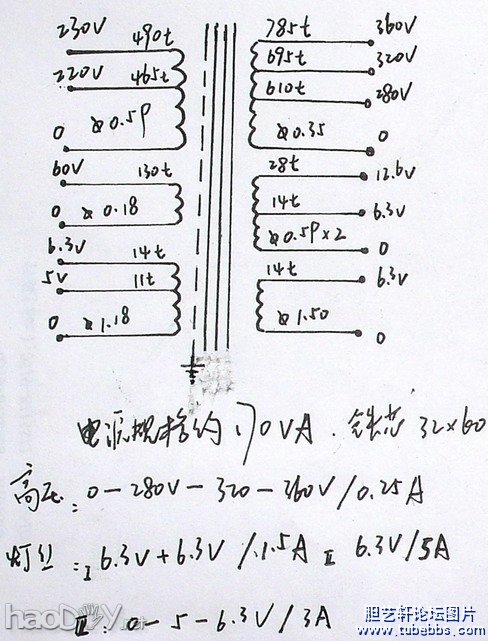 230V 490t 785t 360V
695t 320V
220V 465t 610t 280V
0 ⌀0.59 ⌀0.35 0
60V 130t 28t 12.6V
0 ⌀0.18 14t 6.3V
6.3V 14t ⌀0.59×2 0
5V 11t 14t 6.3V
0 ⌀1.18 ⌀1.50 0
电源规格约170VA.铁芯32×60
高压:0-280V-320-360V/0.25A
灯丝:I 6.3V+6.3V/1.5A II 6.3V/5A
III:0-5-6.3V/3A
haoDIY.net
胆艺轩论坛图片
www.tubebbs.com